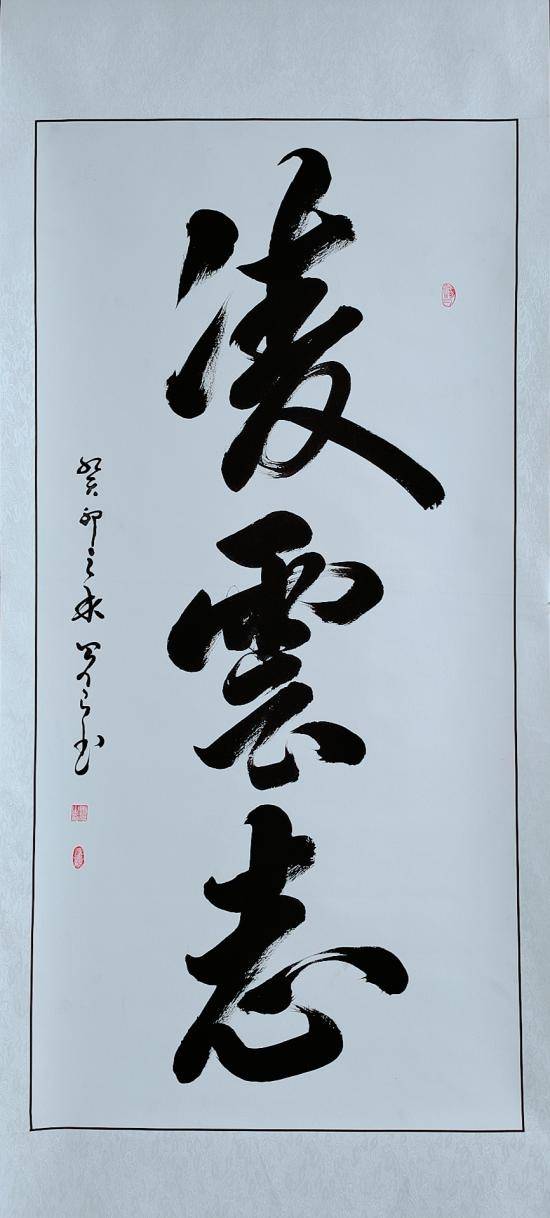 凌雲志
癸卯之秋 書